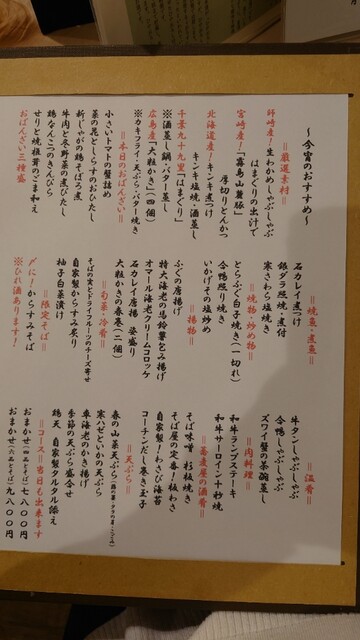 ～今宵のおすすめ～
＝厳選素材＝
野崎産！生わかめしゃぶしゃぶ
はまぐりの出汁で
宮崎産！「霧島山麓豚」
厚切りとんかつ
北海道産！キンキ煮つけ
キンキ塩焼・酒蒸し
千葉九十九里「はまぐり」
※酒蒸し鍋・バター蒸し
広島産「大粒かき」（四個）
※カキフライ・天ぷら・バター焼き
＝本日のおばんざい＝
小さいトマトの蟹詰め
菜の花としらすのおひたし
新じゃがの鶏そぼろ煮
牛肉と冬野菜の煮びたし
鶏なんこつのきんぴら
せりと焼椎茸のごま和え
おばんざい三種盛
＝焼魚・煮魚＝
石カレイ煮つけ
銀ダラ照焼・煮付
寒さわら塩焼き
＝焼物・炒め物＝
とらふぐ白子焼き（一切れ）
合鴨照り焼き
いかげその塩炒め
＝揚物＝
ふぐの唐揚げ
特大海老の馬鈴薯包み揚げ
オマール海老クリームコロッケ
石カレイ唐揚 姿盛り
大粒かきの春巻（二個）
＝旬菜・冷肴＝
そばの実とドライフルーツのチーズ寄せ
自家製からすみ炙り
柚子白菜漬け
＝限定そば＝
〆に！からすみそば
※ひれ酒あります！
＝温肴＝
牛タンしゃぶしゃぶ
合鴨しゃぶしゃぶ
ズワイ蟹の茶碗蒸し
＝肉料理＝
和牛ランプステーキ
和牛サーロイン十秒焼
＝蕎麦屋の酒肴＝
そば味噌 杉板焼き
そば屋の定番！板わさ
自家製！わさび海苔
コーチンだし巻き玉子
＝天ぷら＝
春の山菜天ぷら
寒ハゼといかの天ぷら
車海老のかき揚げ
季節の天ぷら盛合せ
鶏天 自家製タルタル添え
＝コース＝当日も出来ます
おまかせ（四品とそば）七八〇〇円
おまかせ（六品とそば）九八〇〇円